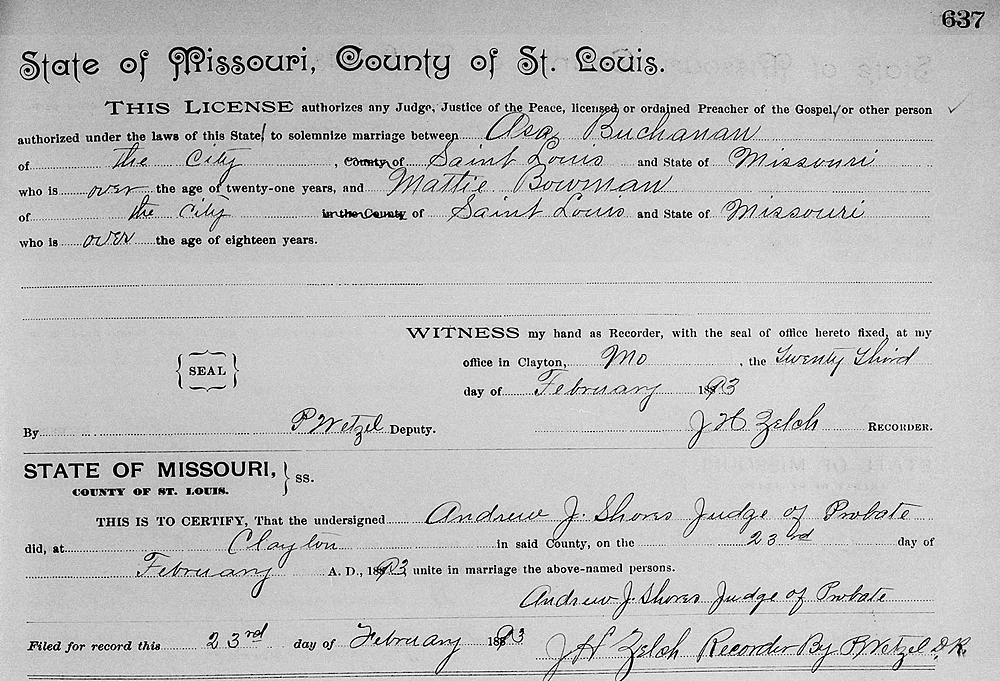 637
State of Missouri, County of St. Louis.
THIS LICENSE authorizes any Judge, Justice of the Peace, licensed or ordained Preacher of the Gospel, or other person
authorized under the laws of this State, to solemnize marriage between Asa Buchanan
of the City, County of Saint Louis and State of Missouri
who is over the age of twenty-one years, and Mattie Bowman
of the City in the County of Saint Louis and State of Missouri
who is over the age of eighteen years.
WITNESS my hand as Recorder, with the seal of office hereto fixed, at my
office in Clayton, Mo, the Twenty Third
SEAL
day of February 1893
By P Wetzel Deputy. J H Zelch RECORDER.
STATE OF MISSOURI, } ss.
COUNTY OF ST. LOUIS.
THIS IS TO CERTIFY, That the undersigned Andrew J. Shores Judge of Probate
did, at Clayton in said County, on the 23rd day of
February A. D., 1893 unite in marriage the above-named persons.
Andrew J. Shores Judge of Probate
Filed for record this 23rd day of February 1893 J H Zelch Recorder By P Wetzel D.R.